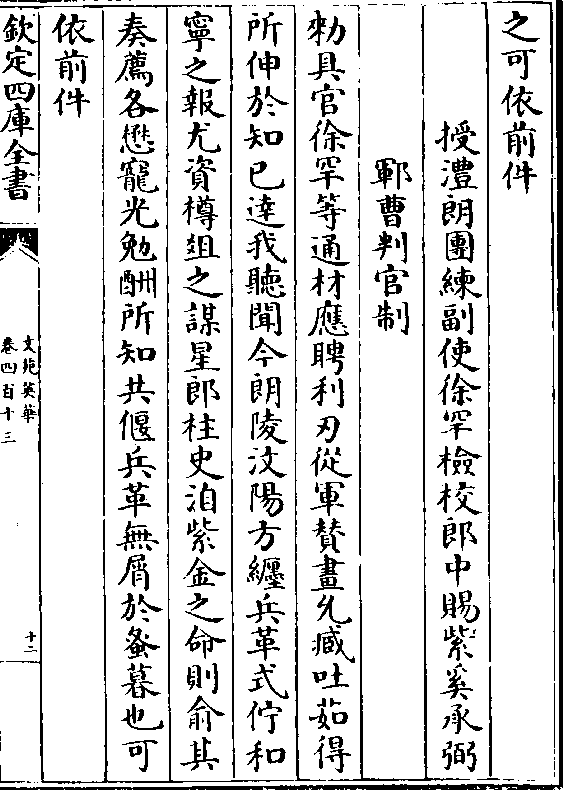 之可依前件
授澧朗團練副使徐罕檢校郎中賜紫奚承弼
鄆曹判官制
勑具官徐罕等通材應聘利刃從軍賛畫允臧吐茹得
所伸於知已逹我聽聞今朗陵汶陽方纒兵革式佇和
寧之報尤資樽俎之謀星郎柱史洎紫金之命則俞其
奏薦各懋寵光勉酬所知共偃兵革無屑於蚤暮也可
依前件
欽定四庫全書
文苑英華
卷四百十三
十二